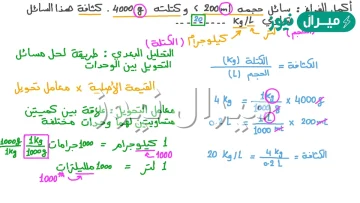 أكمل الفراغ : سائل حجمه 200 ml و كتلته 4000 g . كثافة هذا السائل
تساوي 20 Kg/L
(الحجم)
كيلوجرام (الكتلة)
ميرال نيوز
التحليل البعدي : طريقة لحل مسائل
التحويل بين الوحدات
القيمة الأصلية × معامل تحويل
معامل التحويل : علاقة بين كميتين
متساويتين لهما وحدات مختلفة
1 كيلوجرام = 1000 جرامات 1Kg / 1000g 1000g / 1Kg
÷ 1000
1 لتر = 1000 ملليلترات
1000
الكثافة = الكتلة (Kg) / الحجم (L)
4 Kg = 1Kg / 1000g × 4000g
0.2 L = 1L / 1000 ml × 200 ml
20 Kg/L = 4 kg / 0.2 L = الكثافة